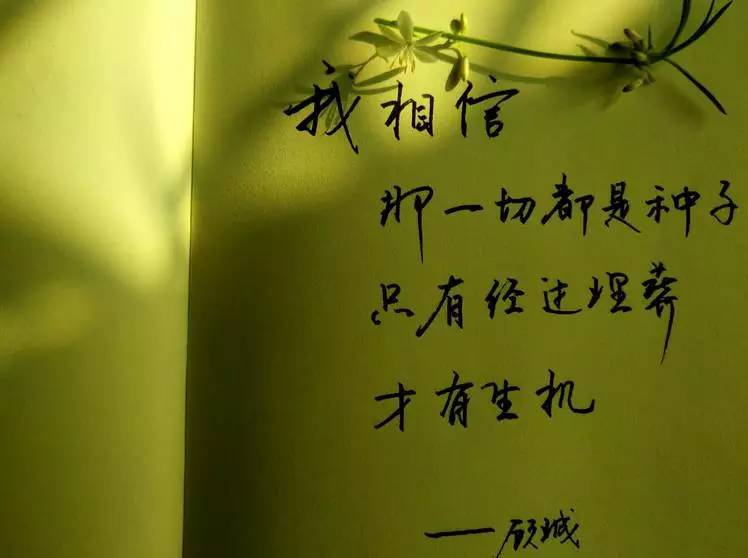 我相信
那一切都是种子
只有经过埋葬
才有生机
——顾城